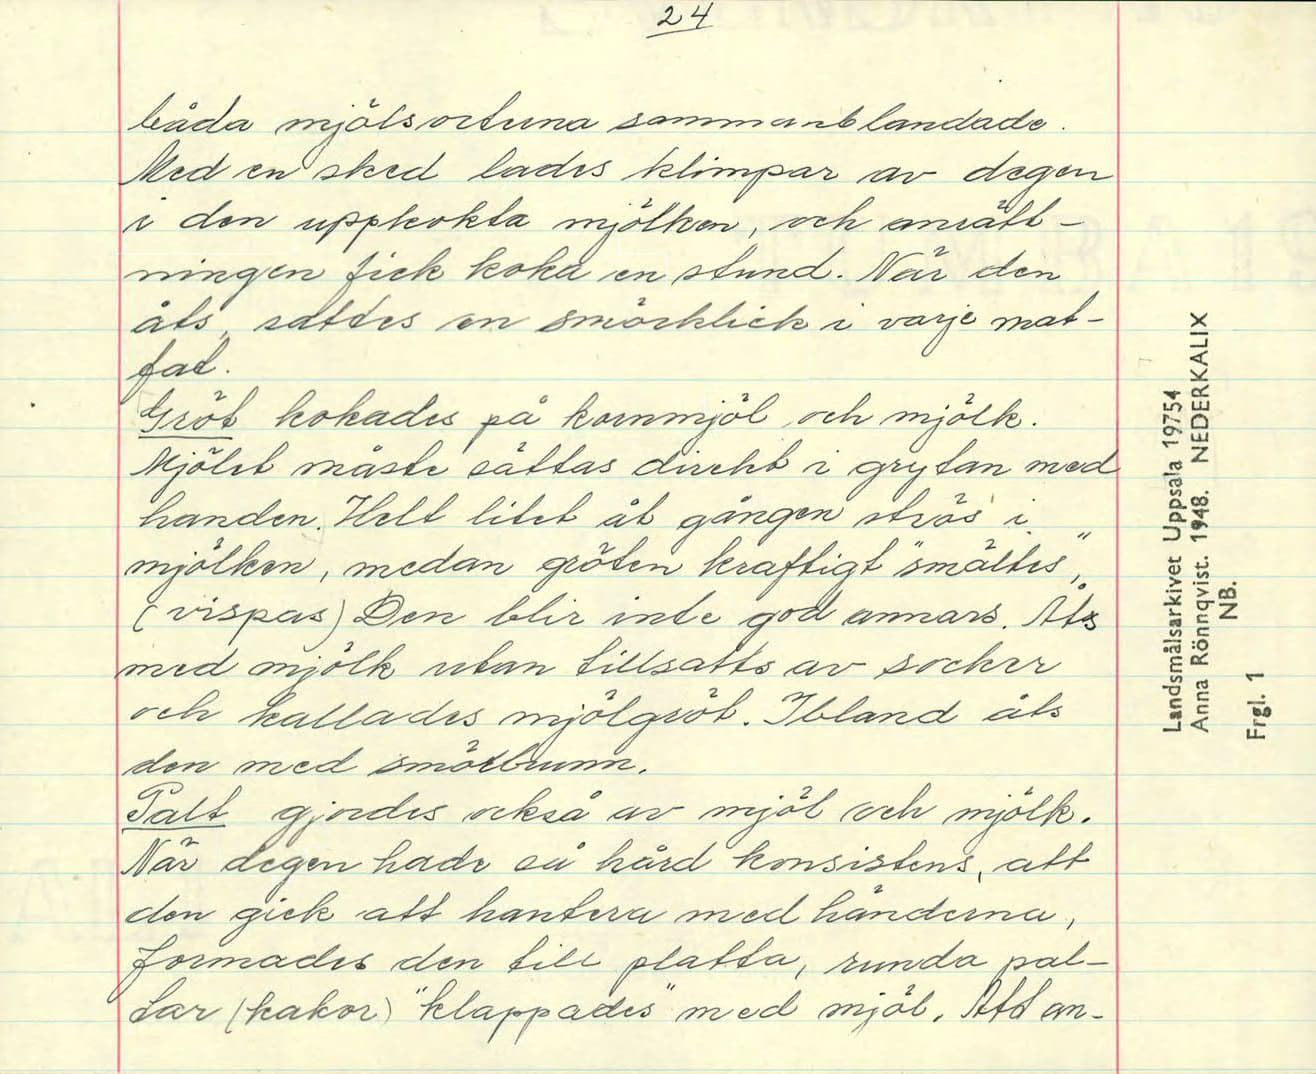 24
båda mjölsorterna sammanblandade.
Med en sked lades klimpar av degen
i den uppkokta mjölken, och anrätt-
ningen fick koka en stund. När den
åts, sattes en smörklick i varje mat-
fat.
Gröt kokades på kornmjöl och mjölk.
Mjölet måste sättas direkt i grytan med
handen. Helt litet åt gången strös i
mjölken, medan gröten kraftigt "smältes",
(vispas) Den blir inte god annars. Äts
med mjölk utan tillsatts av socker
och kallades mjölgröt. Ibland åts
den med smörbrunn.
Palt gjordes också av mjöl och mjölk.
När degen hade så hård konsistens, att
den gick att hantera med händerna,
formades den till platta, runda pal-
tar (kakor) "klappades" med mjöl. Att an-
Landsmålsarkivet Uppsala 19754
Anna Rönnqvist. 1948. NEDERKALIX
NB.
Frgl. 1